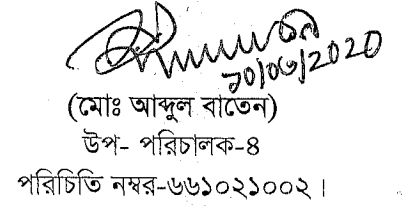 ১০/০৬/2020
(মোঃ আব্দুল বাতেন)
উপ- পরিচালক-৪
পরিচিতি নম্বর-৬৬১০২১০০২।